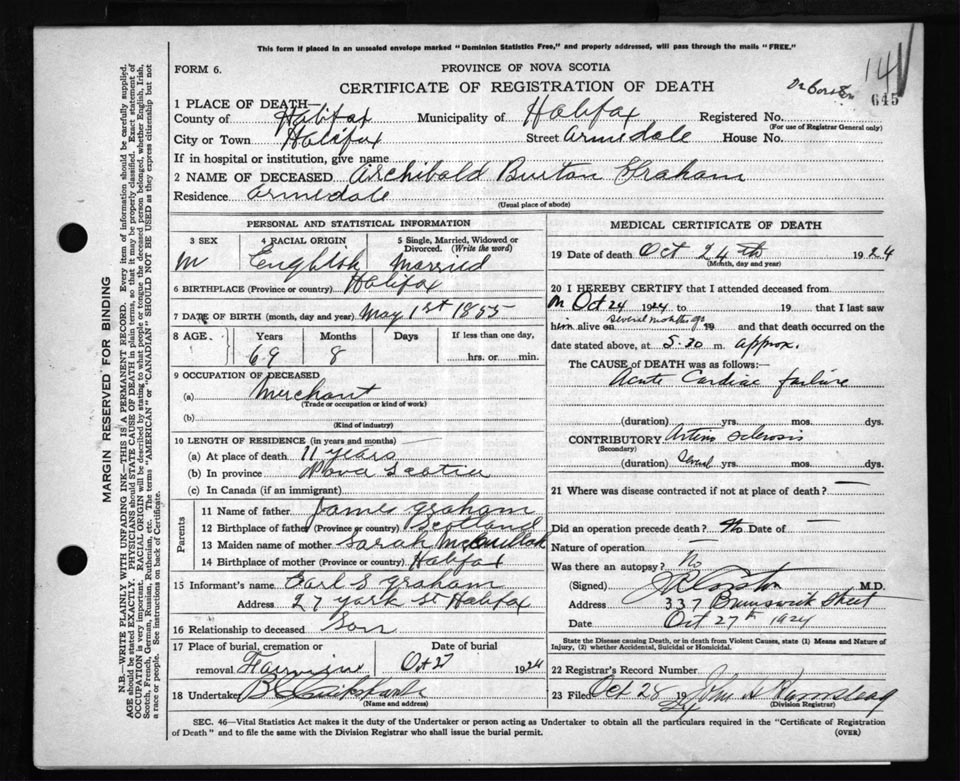 This form if placed in an unsealed envelope marked "Dominion Statistics Free," and properly addressed, will pass through the mails "FREE."
FORM 6.
PROVINCE OF NOVA SCOTIA
14
CERTIFICATE OF REGISTRATION OF DEATH
645
1 PLACE OF DEATH—
County of Halifax Municipality of Halifax Registered No.
(For use of Registrar General only)
City or Town Halifax Street Armdale House No.
If in hospital or institution, give name
2 NAME OF DECEASED Archibald Burton Graham
Residence Armdale
(Usual place of abode)
PERSONAL AND STATISTICAL INFORMATION
3 SEX
M
4 RACIAL ORIGIN
English
5 Single, Married, Widowed or Divorced. (Write the word)
Married
6 BIRTHPLACE (Province or country) Halifax
7 DATE OF BIRTH (month, day and year) May 1st 1855
8 AGE Years Months Days If less than one day,
69 8 hrs. or min.
9 OCCUPATION OF DECEASED
(a) Merchant
(Trade or occupation or kind of work)
(b)
(Kind of industry)
10 LENGTH OF RESIDENCE (in years and months)
(a) At place of death 11 years
(b) In province Nova Scotia
(c) In Canada (if an immigrant)
Parents
11 Name of father James Graham
12 Birthplace of father (Province or country) Scotland
13 Maiden name of mother Sarah
14 Birthplace of mother (Province or country) Halifax
15 Informant's name Earl S Graham
Address 27 York St Halifax
16 Relationship to deceased Son
17 Place of burial, cremation or Date of burial
removal Fairview Oct 27 1924
18 Undertaker
(Name and address)
MEDICAL CERTIFICATE OF DEATH
19 Date of death Oct 24th 1924
(Month, day and year)
20 I HEREBY CERTIFY that I attended deceased from
on Oct 24 1924 to 19 that I last saw
him alive on several months ago 19 and that death occurred on
date stated above, at 5.30 m. approx.
The CAUSE of DEATH was as follows:—
Acute Cardiac failure
(duration) yrs. mos. dys.
CONTRIBUTORY Arterio sclerosis
(Secondary)
(duration) Several yrs. mos. dys.
21 Where was disease contracted if not at place of death? —
Did an operation precede death? No Date of —
Nature of operation —
Was there an autopsy? No
(Signed) M.D.
Address 337 Brunswick Street
Date Oct 27th 1924
State the Disease causing Death, or in death from Violent Causes, state (1) Means and Nature of
Injury, (2) whether Accidental, Suicidal or Homicidal.
22 Registrar's Record Number
23 Filed Oct 28 19 24 John A
(Division Registrar)
SEC. 46—Vital Statistics Act makes it the duty of the Undertaker or person acting as Undertaker to obtain all the particulars required in the "Certificate of Registration
of Death" and to file the same with the Division Registrar who shall issue the burial permit. (OVER)
MARGIN RESERVED FOR BINDING
N.B.—WRITE PLAINLY WITH UNFADING INK—THIS IS A PERMANENT RECORD. Every item of information should be carefully supplied.
AGE should be stated EXACTLY. PHYSICIANS should STATE CAUSE OF DEATH in plain terms, so that it may be properly classified. Exact statement of
OCCUPATION is very important. RACIAL ORIGIN will be described by stating to what people or tongue the deceased person belonged, whether English, Irish,
Scotch, French, German, Russian, Ruthenian, etc. The terms "AMERICAN" or "CANADIAN" SHOULD NOT BE USED as they express citizenship but not
a race or people. See instructions on back of Certificate.